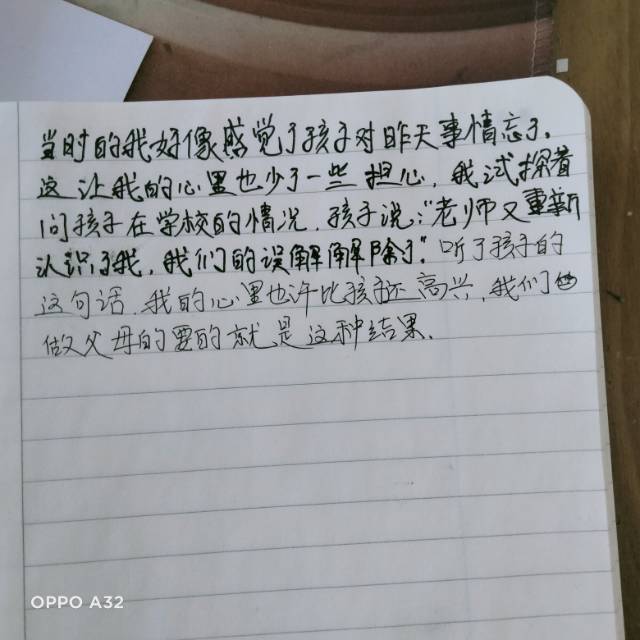 当时的我好像感觉了孩子对昨天事情忘了.
这让我的心里也少了一些担心, 我试探着
问孩子在学校的情况. 孩子说:"老师又重新
认识了我, 我们的误解解除了." 听了孩子的
这句话. 我的心里也许比孩子还高兴, 我们
做父母的要的就是这种结果.
OPPO A32